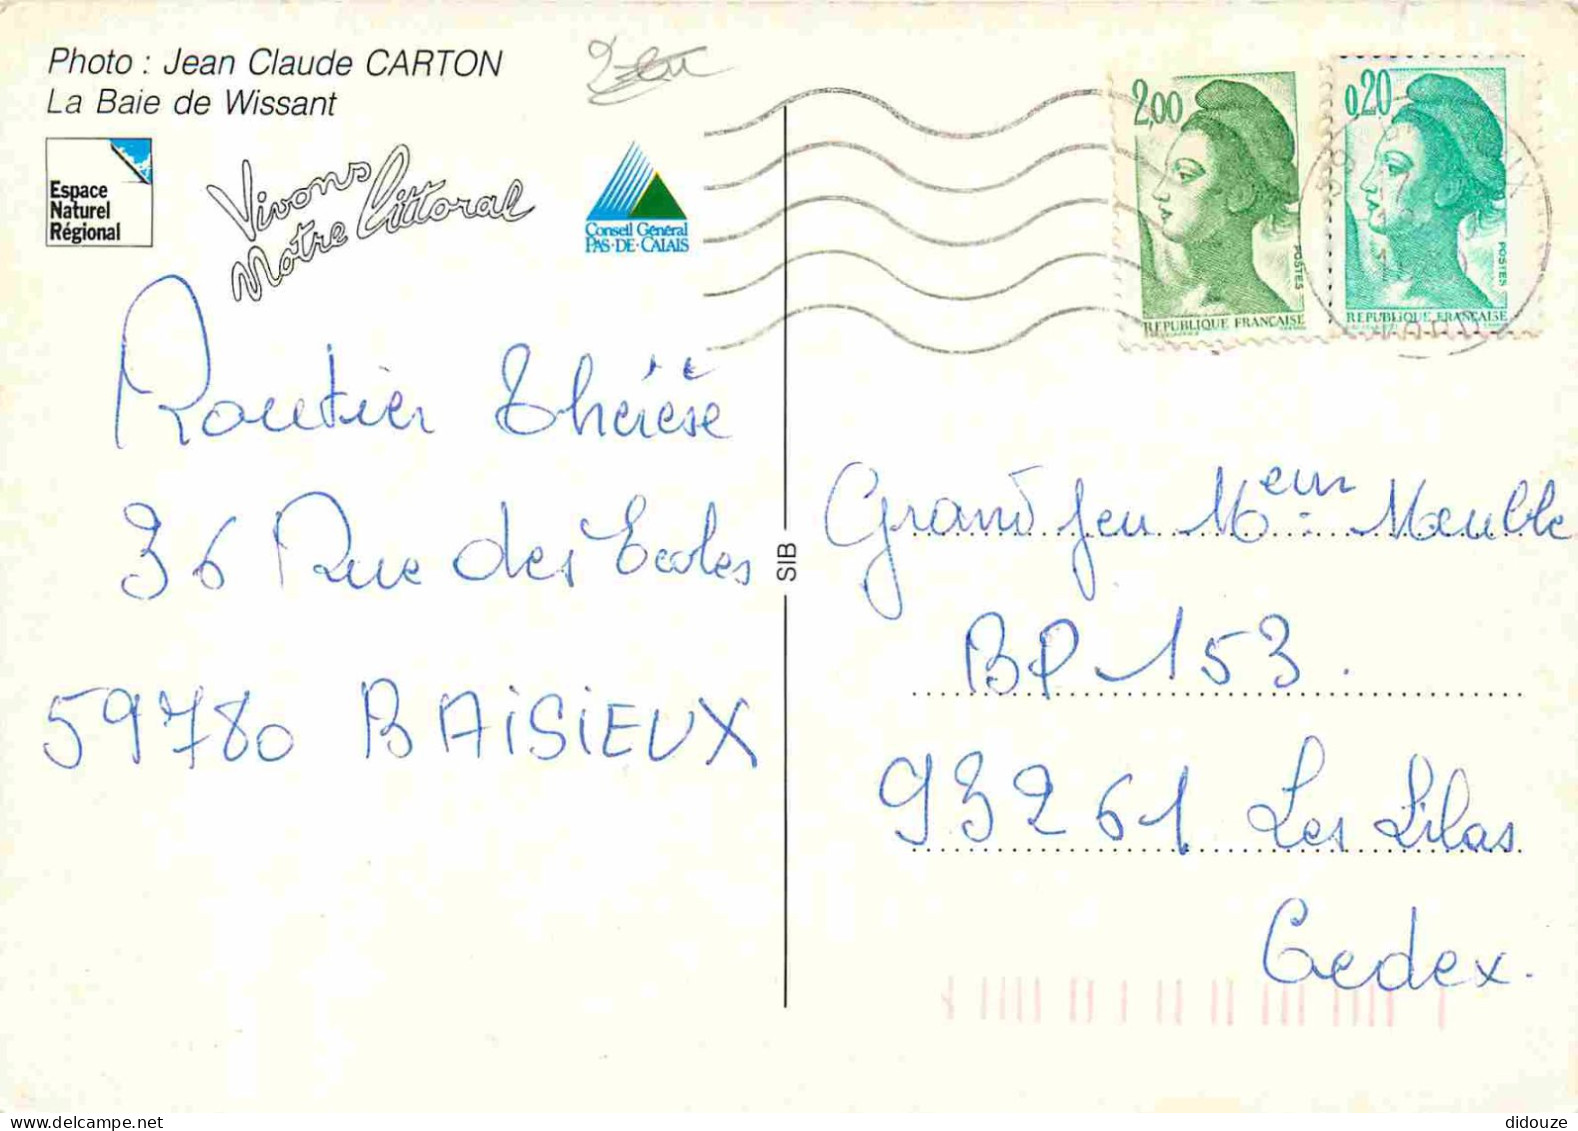 Photo : Jean Claude CARTON
La Baie de Wissant
Espace
Naturel
Régional
Vivons
Notre littoral
Conseil Général
PAS-DE-CALAIS
2,00
POSTES
REPUBLIQUE FRANÇAISE
0,20
POSTES
REPUBLIQUE FRANÇAISE
Routier Thérèse
36 Rue des Ecoles
59780 BAISIEUX
SIB
Grand Jeu Mr Meuble
BP 153.
93261 Les Lilas
Cedex.
didouze